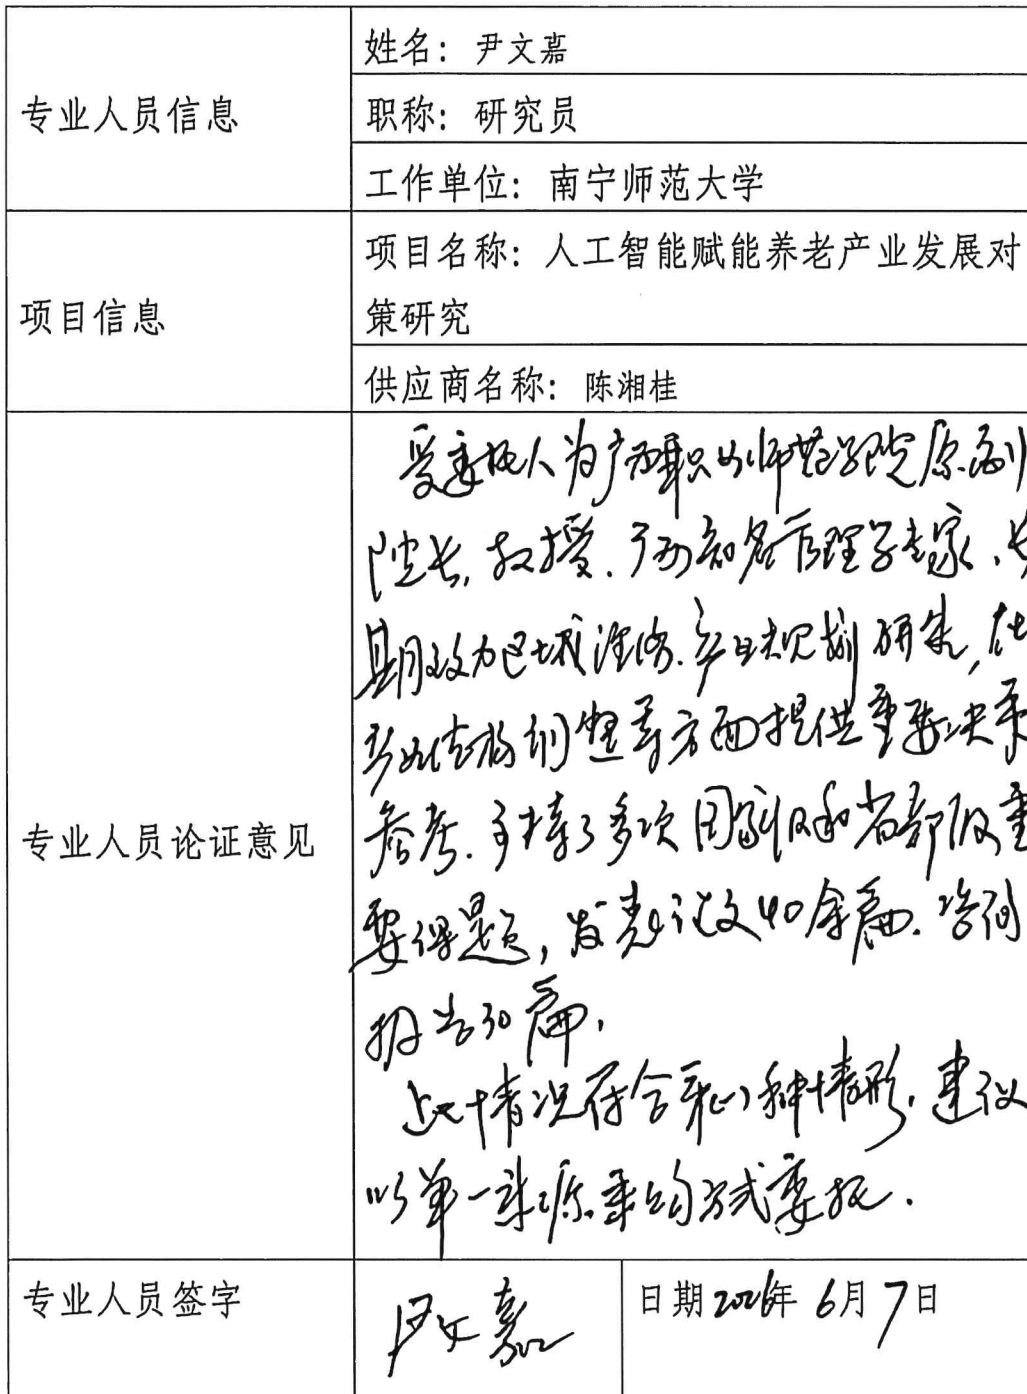 专业人员信息
姓名：尹文嘉
职称：研究员
工作单位：南宁师范大学
项目信息
项目名称：人工智能赋能养老产业发展对
策研究
供应商名称：陈湘桂
专业人员论证意见
受委托人为广西职业师范学院原副
院长，教授．广西知名管理学专家，长
期致力区域经济．产业规划研究，在
产业结构调整等方面提供重要决策
参考．主持了多项国家级和省部级重
要课题，发表论文40余篇．咨询
报告30篇，
上述情况符合第(一)种情形．建议
以单一来源采购方式委托．
专业人员签字
尹文嘉
日期2026年6月7日